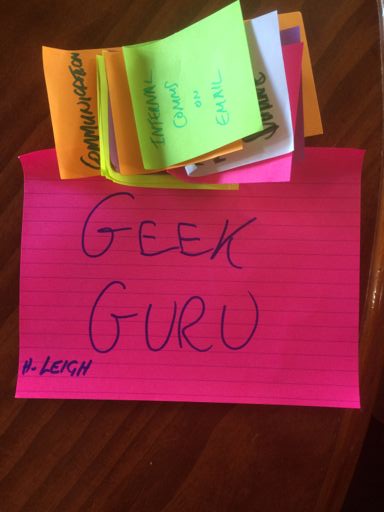 COMMUNICATION
INTERNAL
COMMS
ON
EMAIL
GEEK
GURU
H-LEIGH